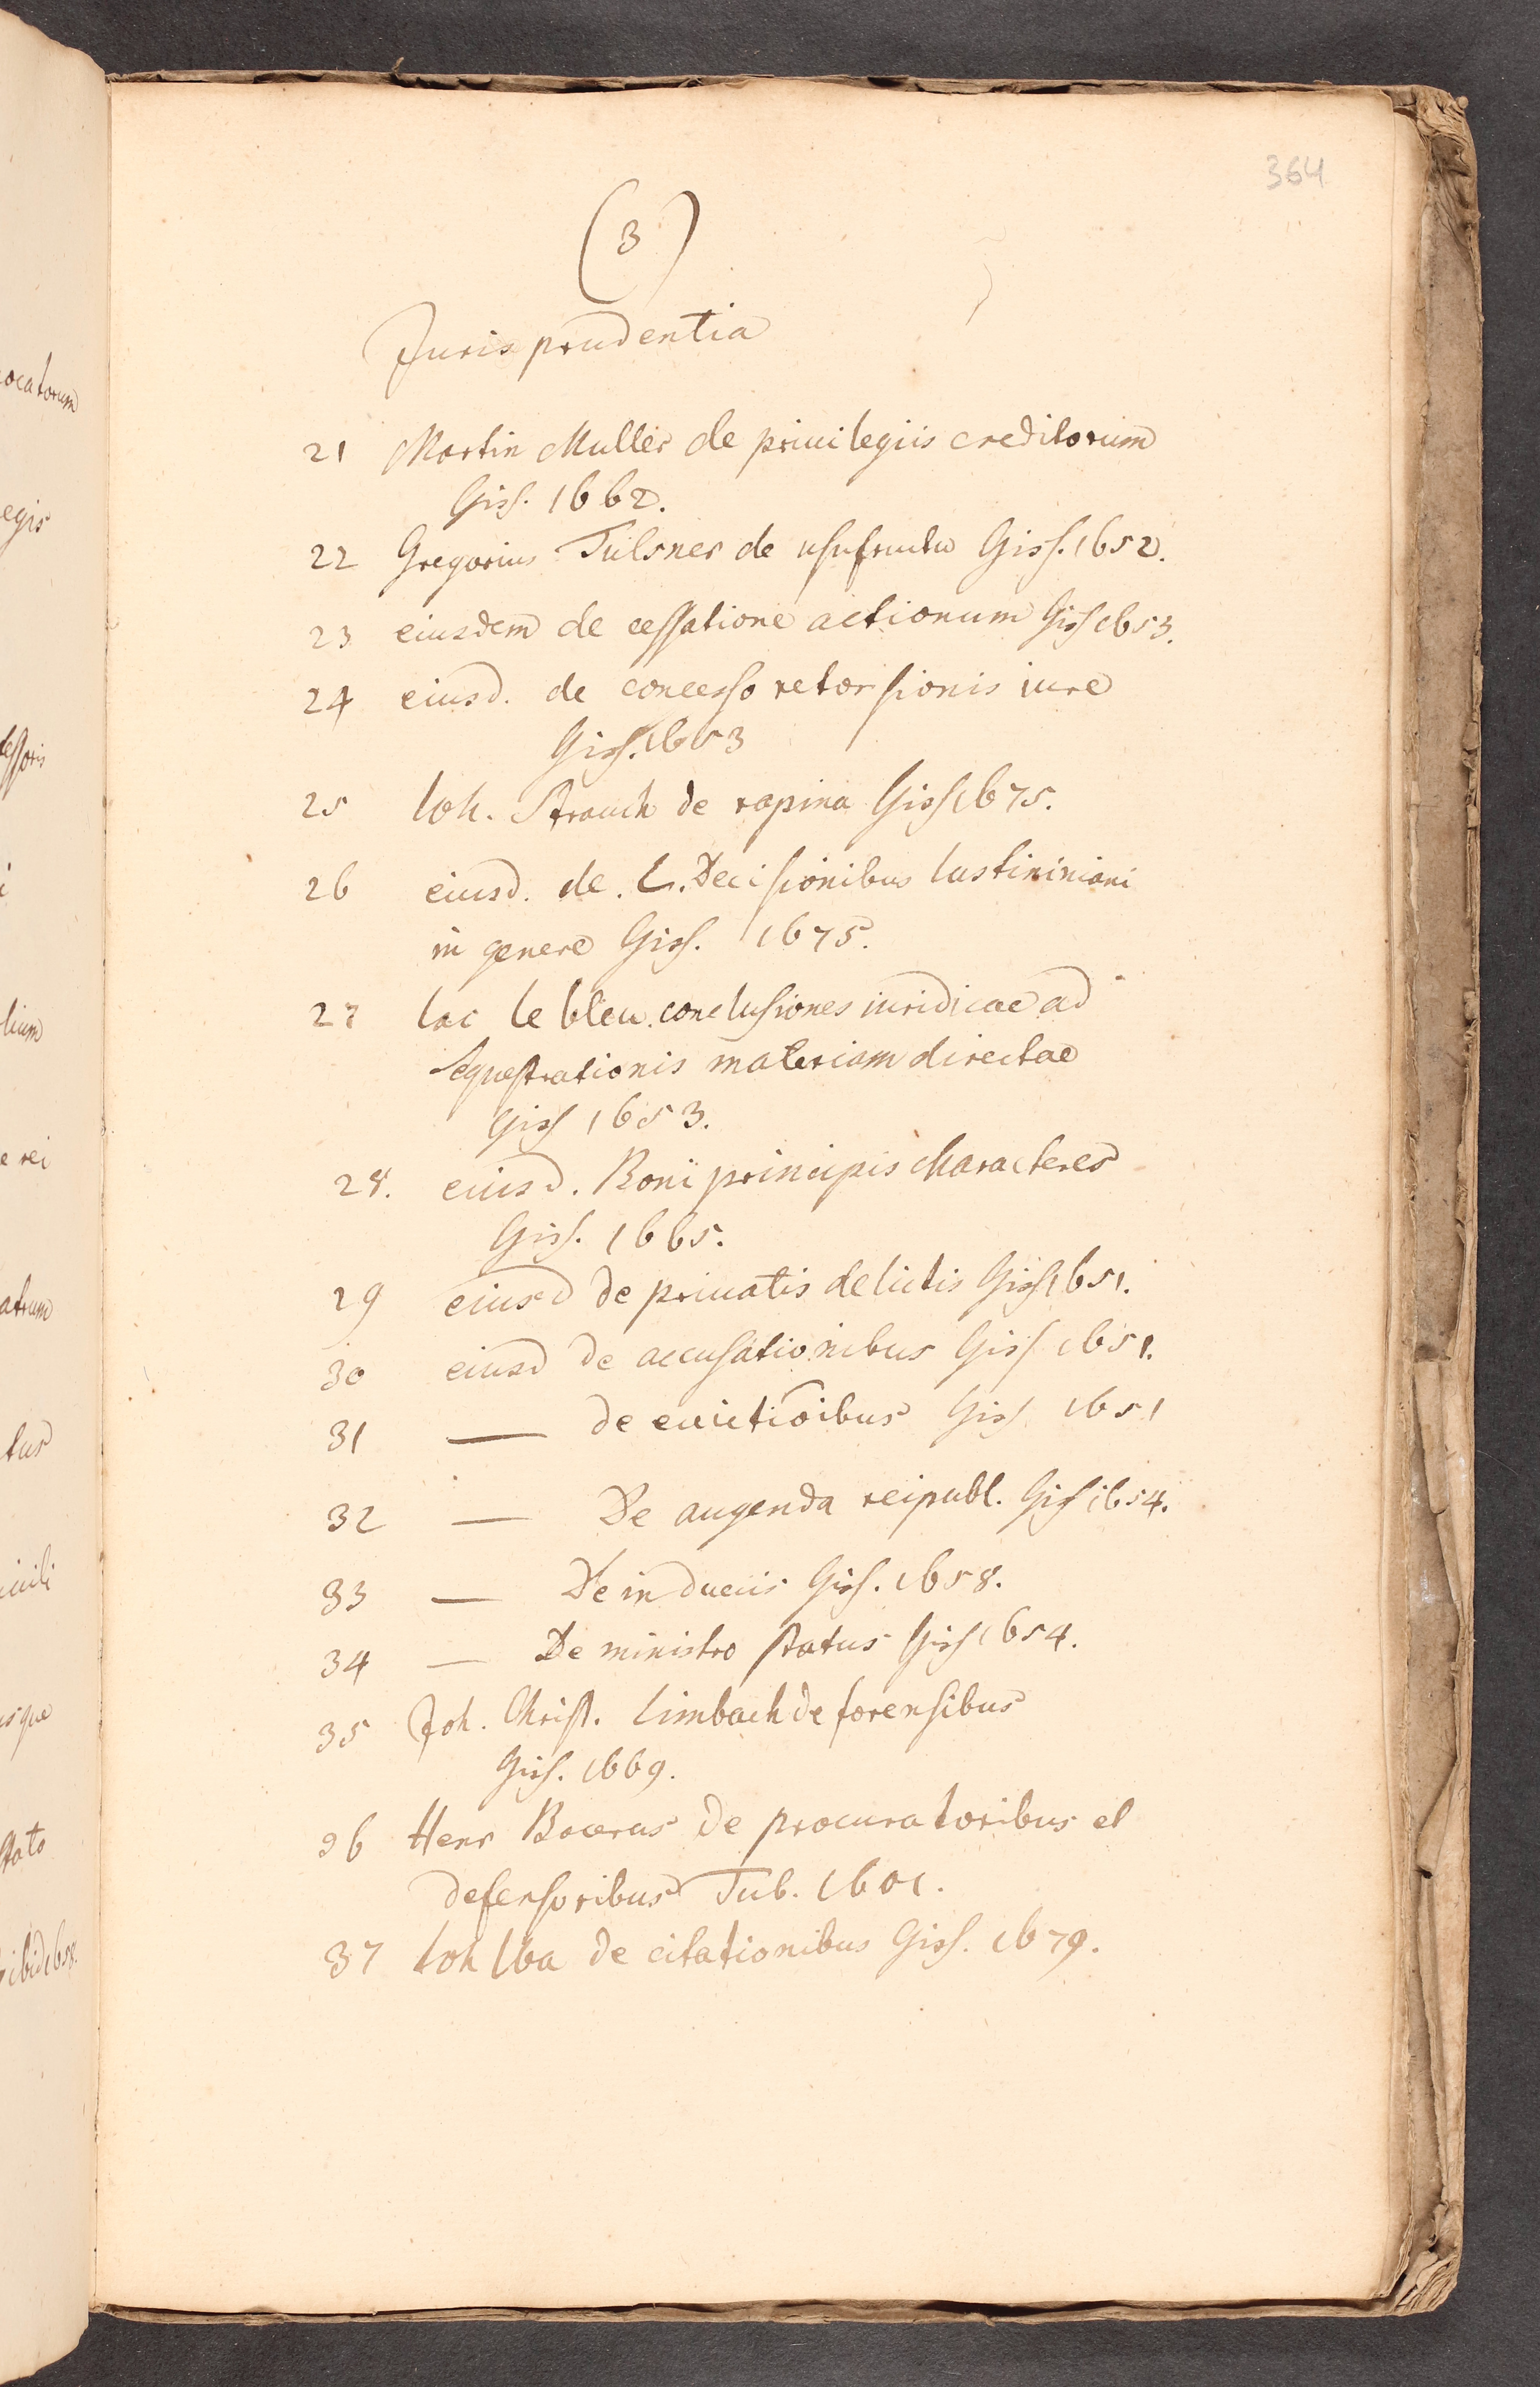 364
(3)
Jurisprudentia
21 Martin Muller de priuilegiis creditorum
Giss. 1662.
22 Gregorius Tulsner de usufructu Giss. 1652.
23 eiusdem de cessatione actionum Giss 1653.
24 eiusd. de concesso retorsionis iure
Giss. 1653
25 Ioh. Strauch de rapina Giss 1675.
26 eiusd. de. L. Decisionibus Iustininiani
in genere Giss. 1675.
27 Iac le bleu. conclusiones iuridicae ad
Sequestrationis materiam directae
Giss 1653.
28. eiusd. Boni principis characteres
Giss. 1665.
29 eiusd de priuatis delictis Giss 1651.
30 eiusd de accusationibus Giss 1651.
31 — de euictiōibus Giss 1651
32 — De augenda reipubl. Giss 1654.
33 — De induciis Giss. 1658.
34 — De ministro status Giss 1654.
35 Joh. Christ. Limbach de forensibus
Giss. 1669.
36 Henr Bocerus de procuratoribus et
defensoribus Tub. 1601.
37 Ioh Uba de citationibus Giss. 1679.